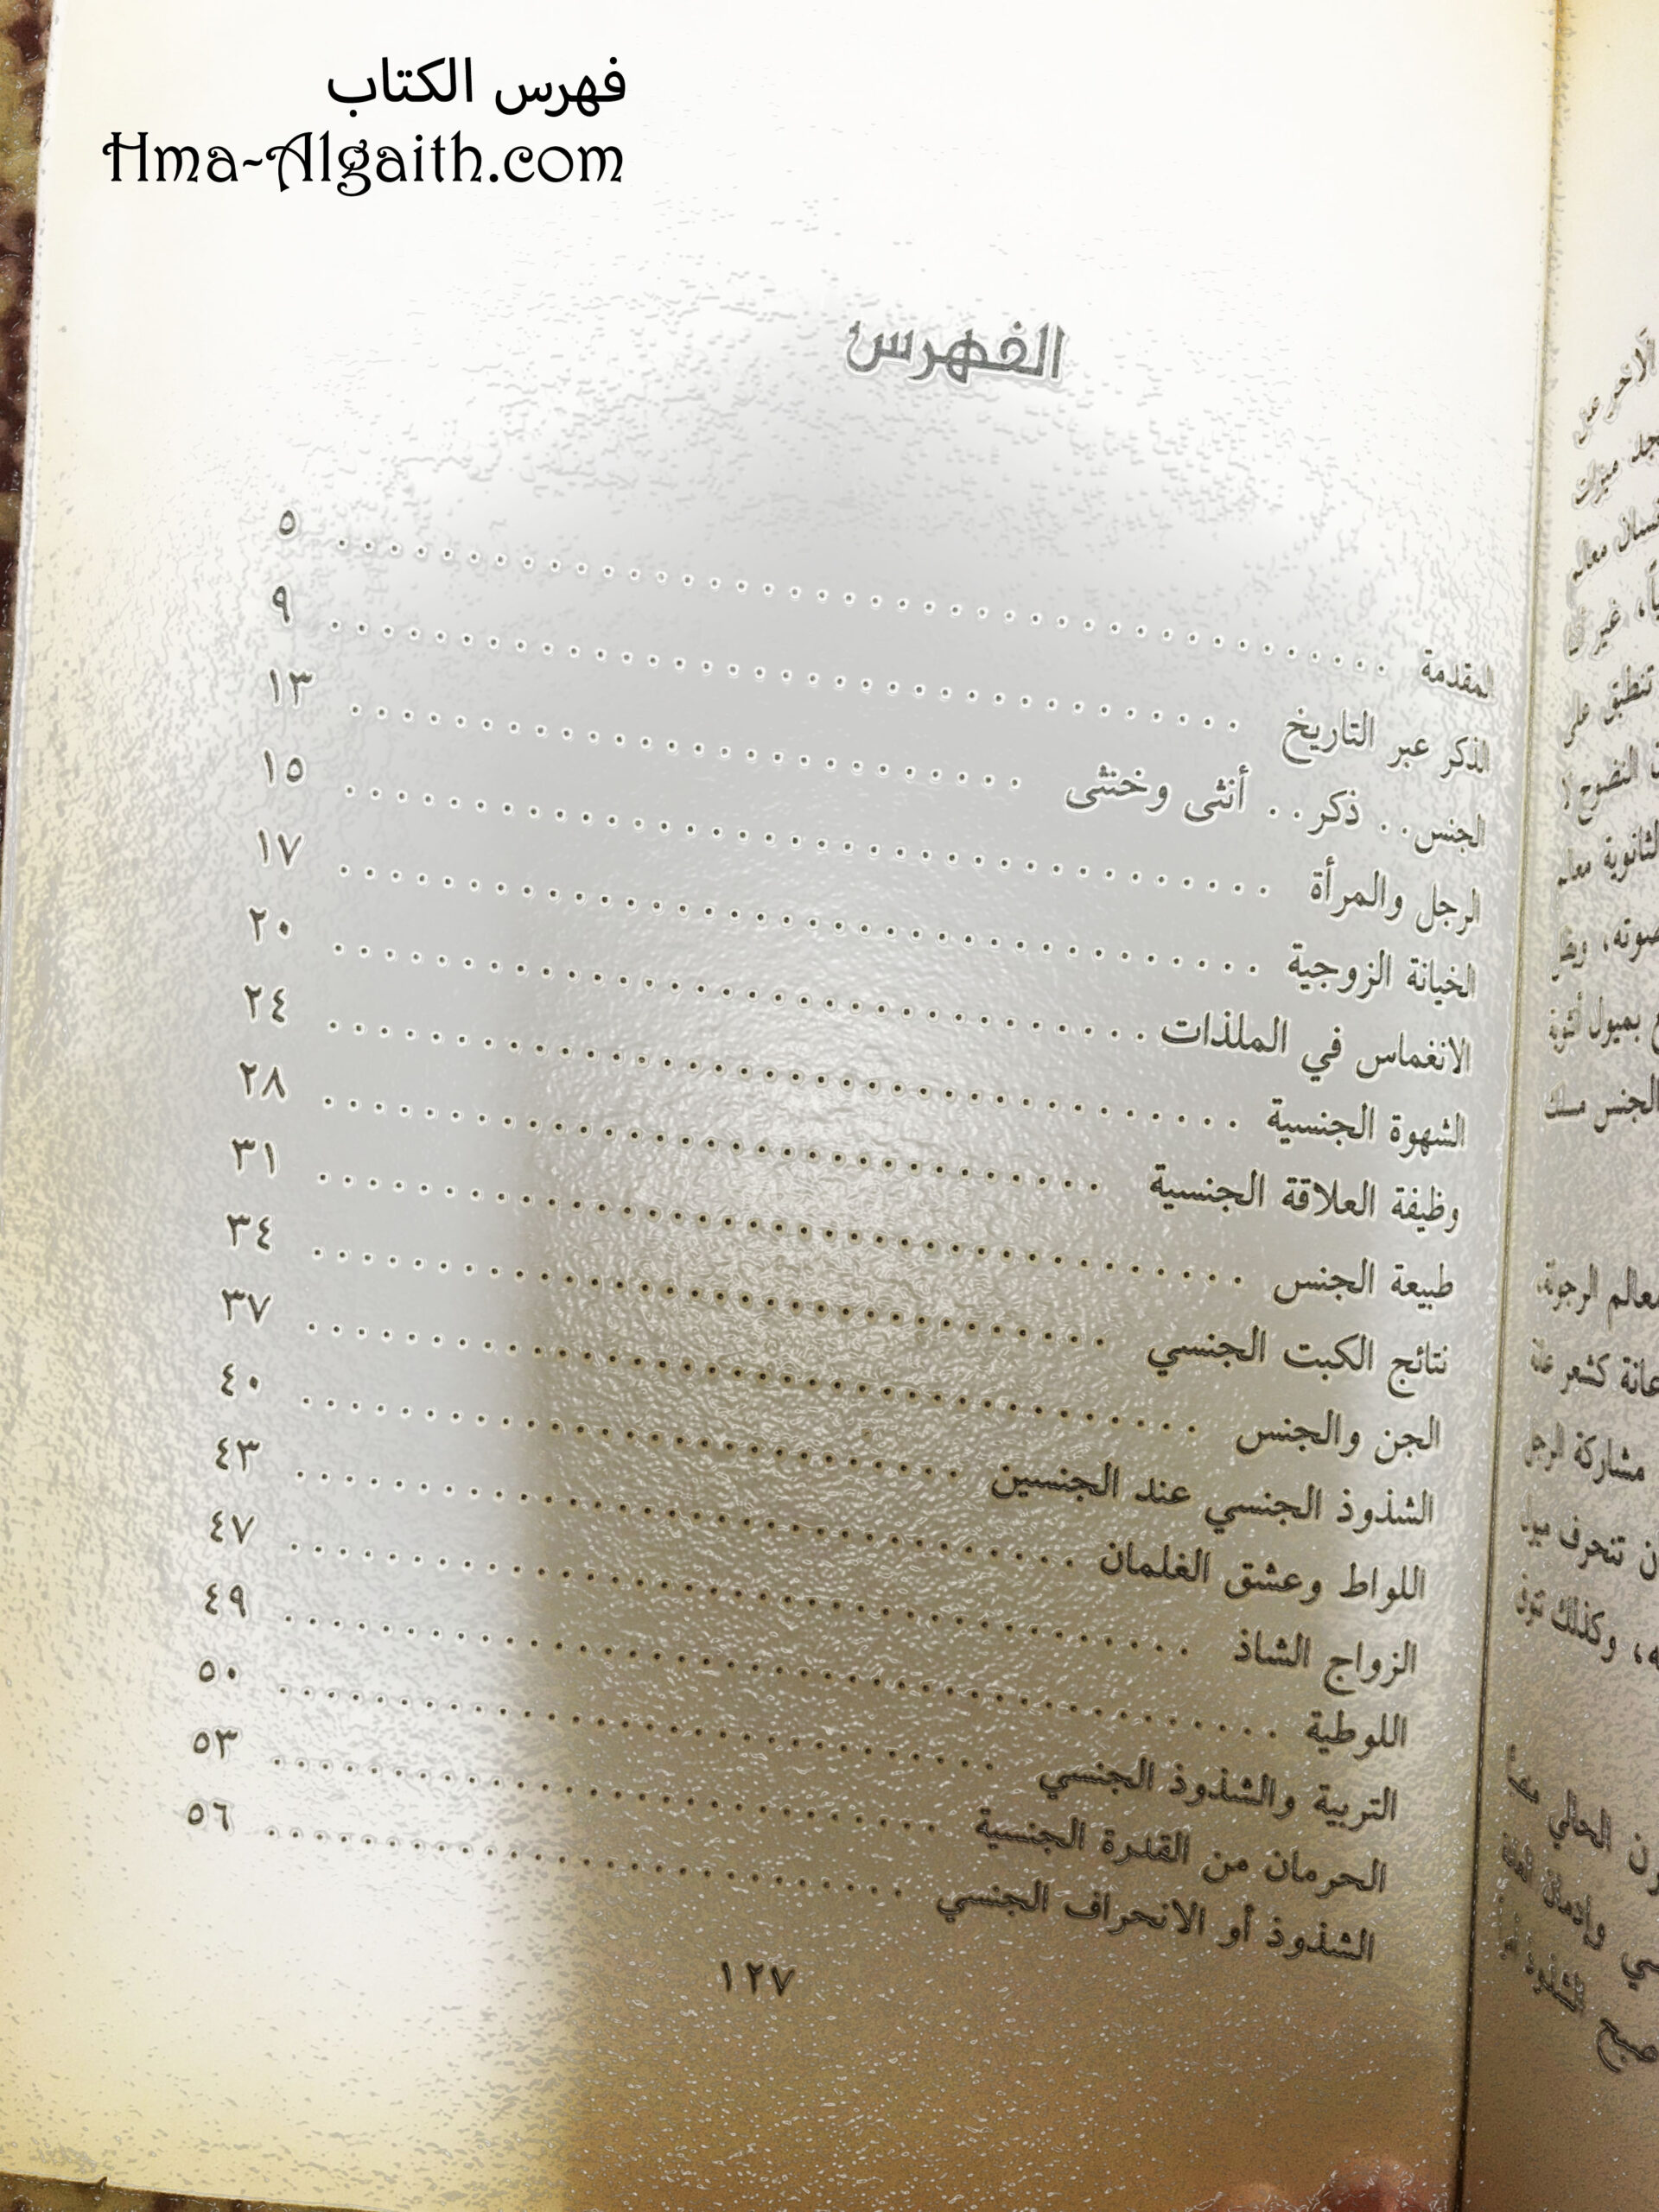 فهرس الكتاب
Hma-Algaith.com
الفهرس
المقدمة ٥
الذكر عبر التاريخ ٩
الجنس.. ذكر.. أنثى وخنثى ١٣
الرجل والمرأة ١٥
الخيانة الزوجية ١٧
الانغماس في الملذات ٢٠
الشهوة الجنسية ٢٤
وظيفة العلاقة الجنسية ٢٨
طبيعة الجنس ٣١
نتائج الكبت الجنسي ٣٤
الجن والجنس ٣٧
الشذوذ الجنسي عند الجنسين ٤٠
اللواط وعشق الغلمان ٤٣
الزواج الشاذ ٤٧
اللوطية ٤٩
التربية والشذوذ الجنسي ٥٠
الحرمان من القدرة الجنسية ٥٣
الشذوذ أو الانحراف الجنسي ٥٦
١٢٧
تنطبق على
النضوج لا
الثانوية
بميول
الجنس
معالم
كشعر
مشاركة الرجل
تنحرف
وكذلك
الحالي